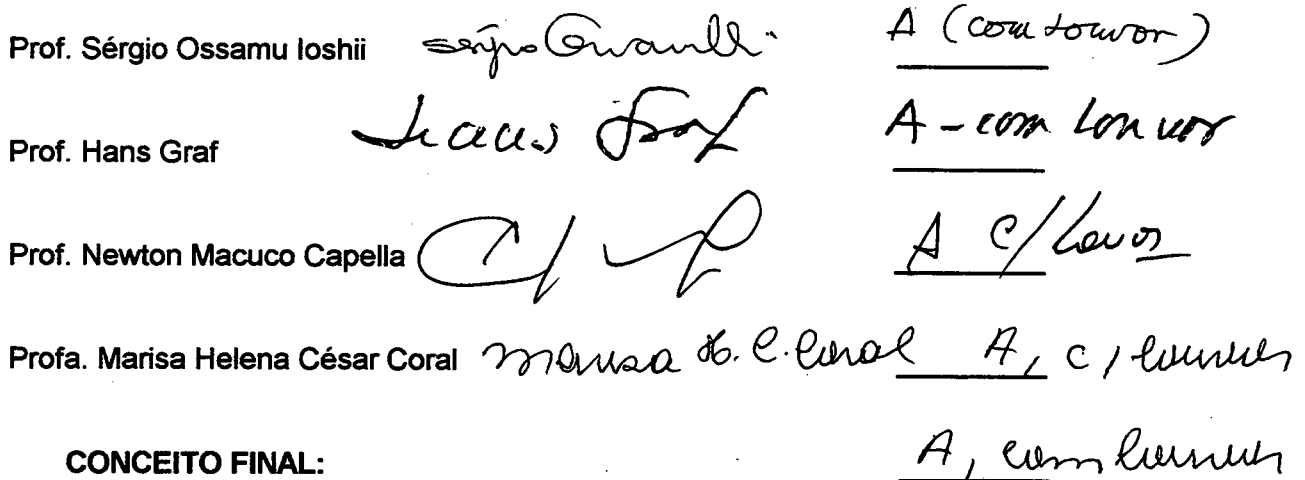 Prof. Sérgio Ossamu Ioshii sérgio A (com louvor)
Prof. Hans Graf Hans Graf A - com louvor
Prof. Newton Macuco Capella A c/ louvor
Profa. Marisa Helena César Coral Marisa H. C. Coral A, c/ louvor
CONCEITO FINAL: A, com louvor